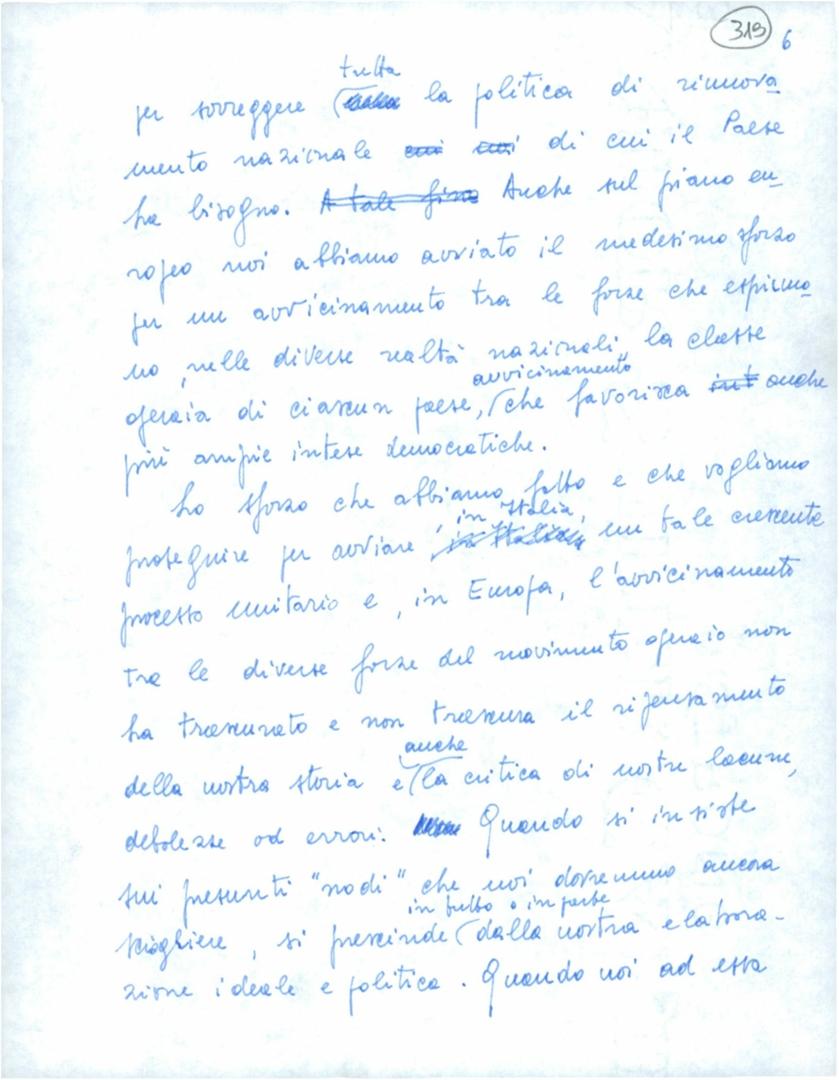 319 6
tutta
per sorreggere la politica di rinnova
mento nazionale cui cui di cui il Paese
ha bisogno. A tale fine Anche sul piano eu
ropeo noi abbiamo avviato il medesimo sforzo
per un avvicinamento tra le forze che esprimo
no, nelle diverse realtà nazionali, la classe
avvicinamento
operaia di ciascun paese, che favorisca int anche
più ampie intese democratiche.
Lo sforzo che abbiamo fatto e che vogliamo
, in Italia,
proseguire per avviare in Italia, un tale crescente
processo unitario e, in Europa, l'avvicinamento
tra le diverse forze del movimento operaio non
ha trascurato e non trascura il ripensamento
anche
della nostra storia e la critica di nostre lacune,
debolezze od errori. Quando si insiste
sui presunti "nodi" che noi dovremmo ancora
in tutto o in parte
sciogliere, si prescinde dalla nostra elabora-
zione ideale e politica. Quando noi ad essa